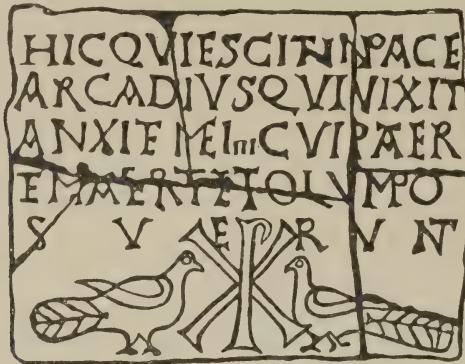 HICQVIESCITINPACE
ARCADIVSQVIVIXIT
ANXIETMEIIIICVIPATER
ETMATERTETOLVMPO
SVERVNT